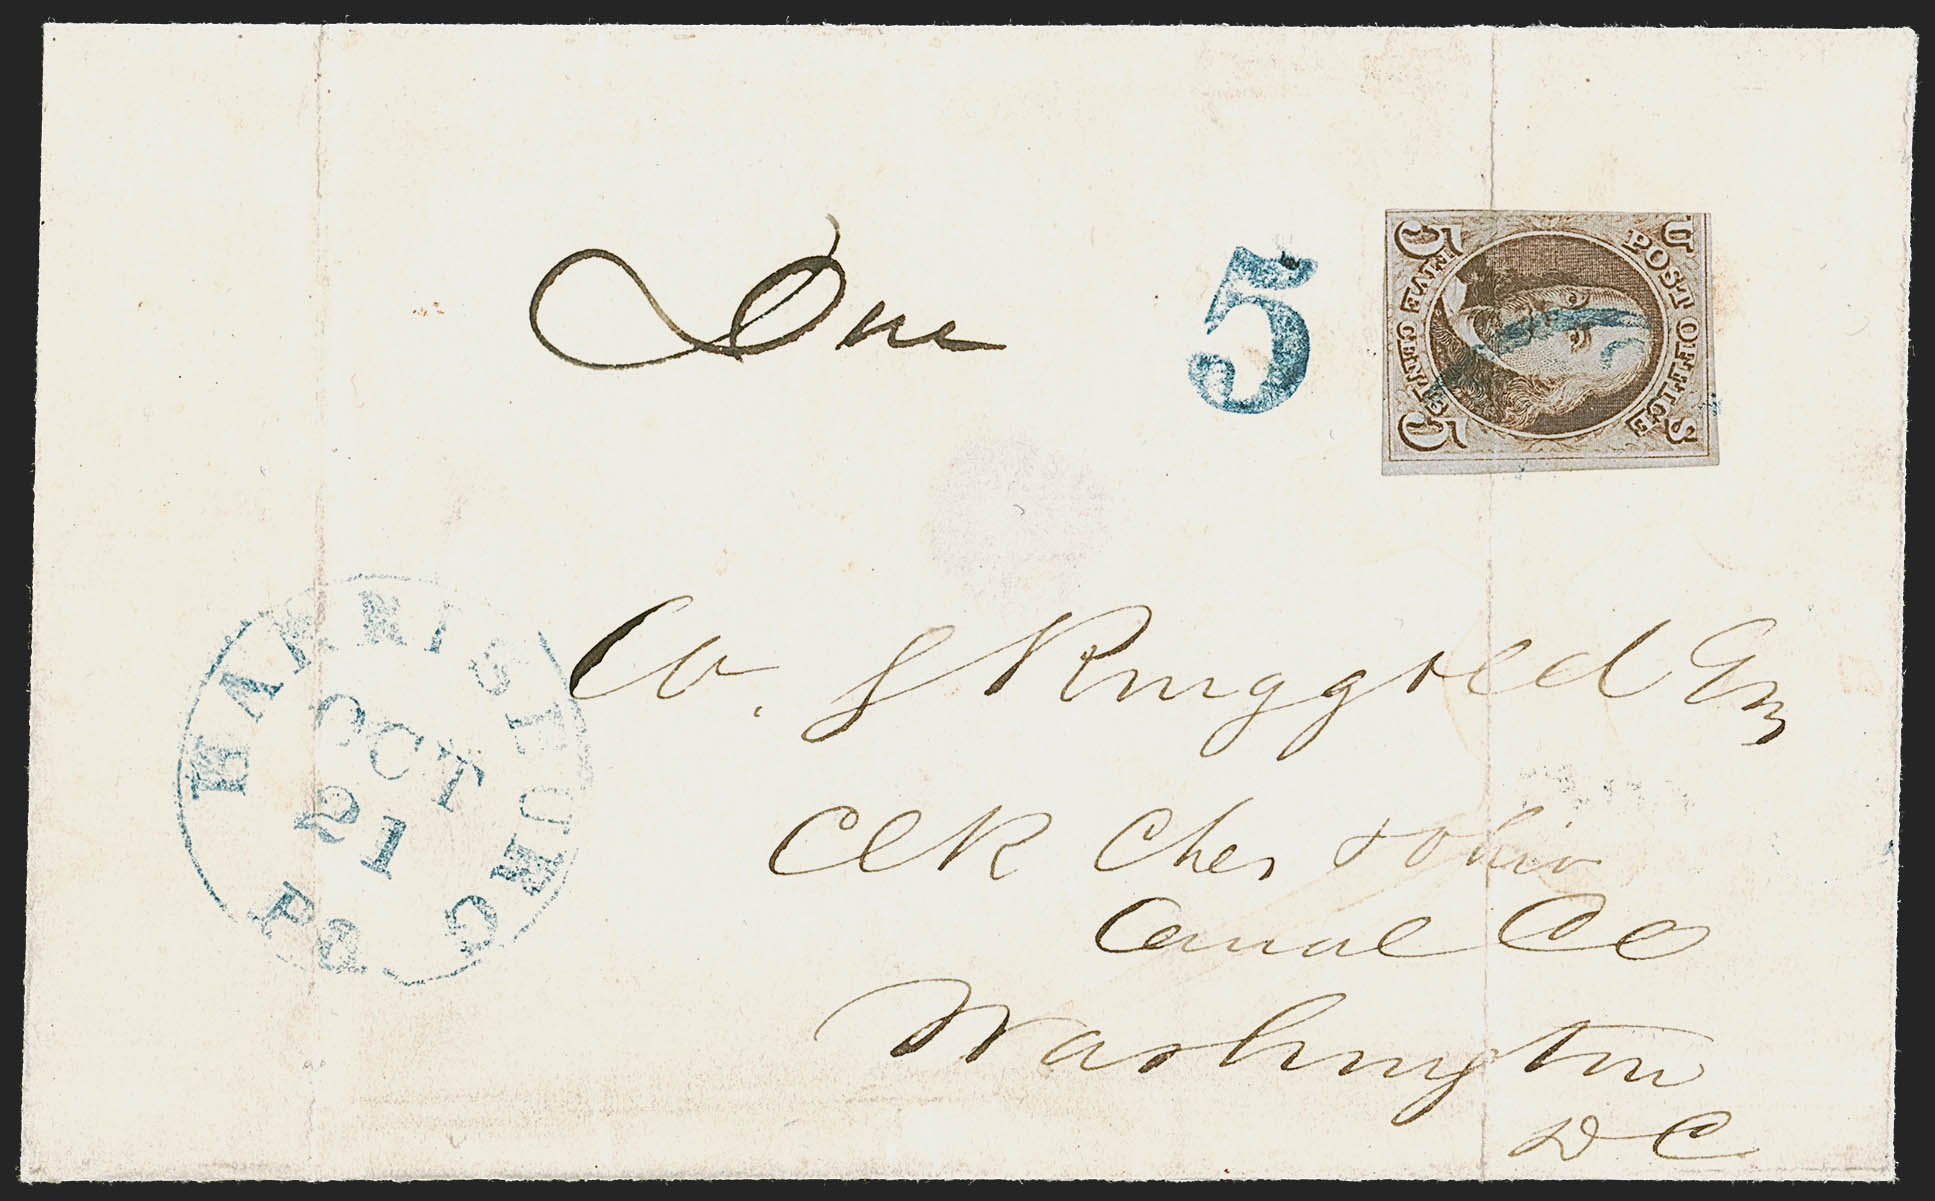 Due 5
U S
POST OFFICE
FIVE CENTS
5 5
HARRISBURG
OCT
21
Pa
W. S Ringgold Esq
Clk Ches & Ohio
Canal Co
Washington
D C